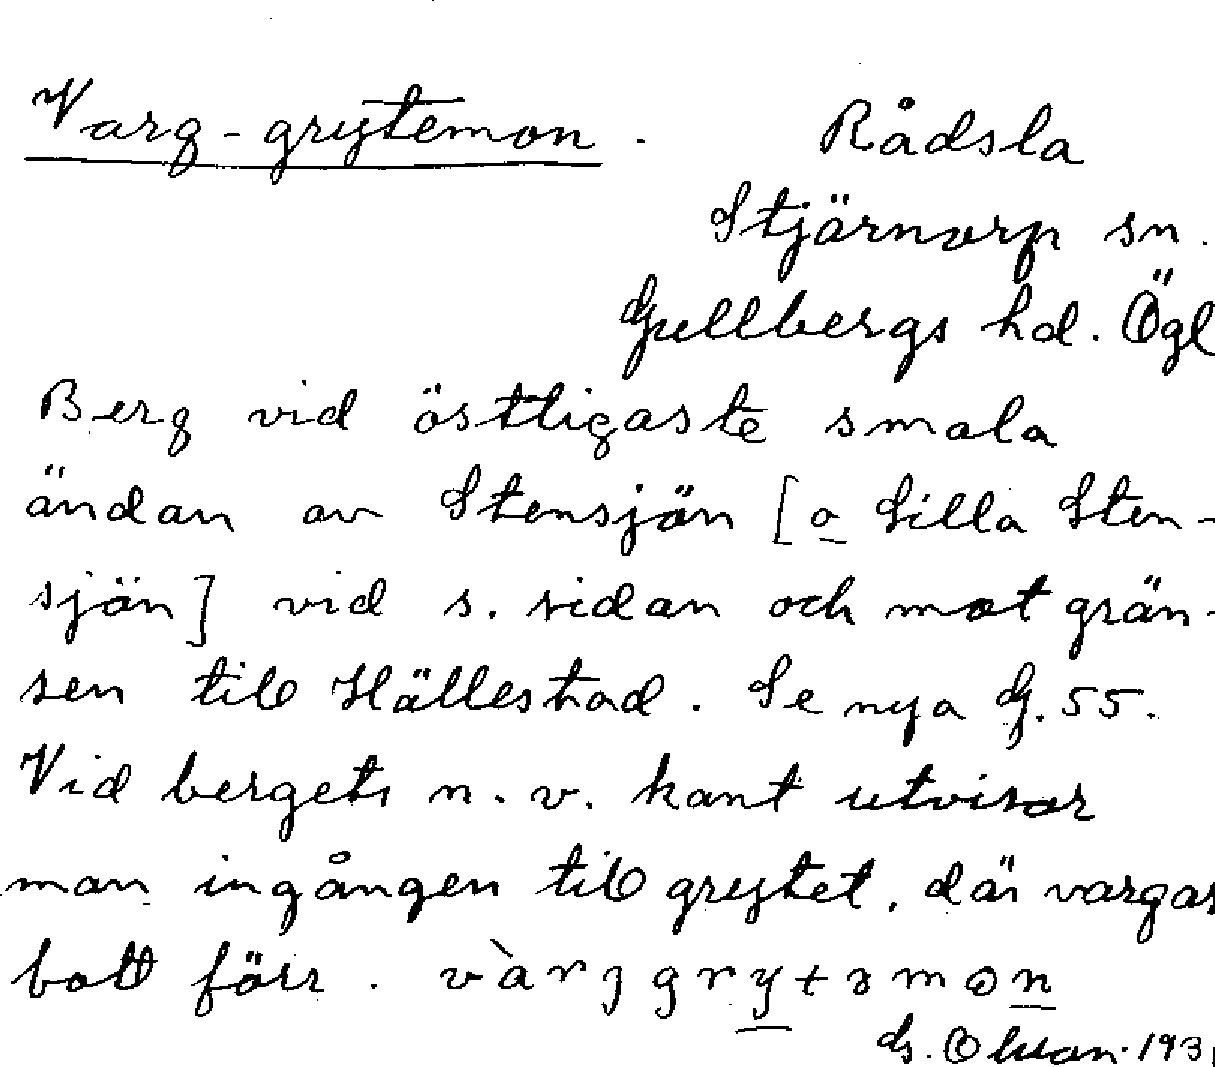 Varg-grytemon. Rådsla
Stjärnorp sn.
Gullbergs hd. Ögl
Berg vid östligaste smala
ändan av Stensjön [o Lilla Sten-
sjön] vid s. sidan och mot grän-
sen till Hällestad. Se nya G. 55.
Vid bergets n. v. kant utvisar
man ingången till grytet, där vargar
bott förr. vàrjgrytəmon
1931